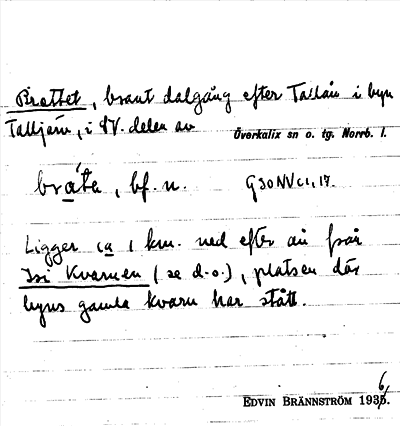 Brattet, brant dalgång efter Tallån i byn
Talljärv, i NV. delen av Överkalix sn o. tg. Norrb. l.
bråte, bf. n. G30NVc1,17.
Ligger ca 1 km. ned efter ån från
Isi Kvarnen (se d.o.), platsen där
byns gamla kvarn har stått.
EDVIN BRÄNNSTRÖM 1936.